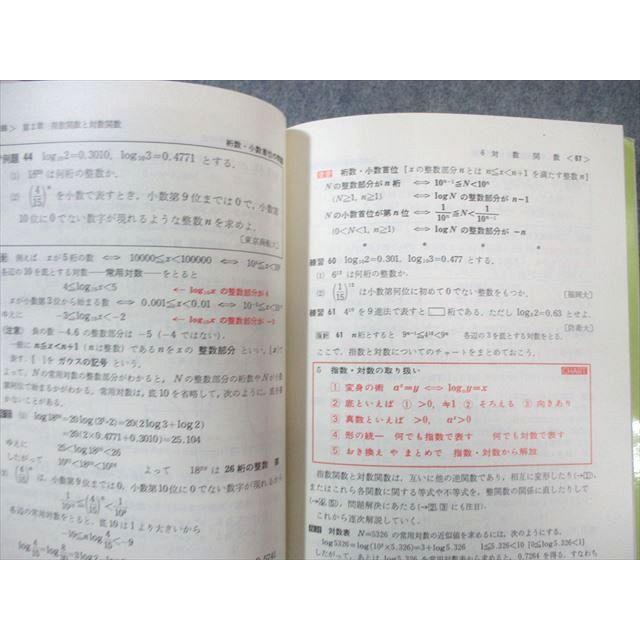 第2章 指数関数と対数関数
桁数・小数首位の問題
例題 44 log₁₀2=0.3010, log₁₀3=0.4771 とする.
(1) 18²⁰ は何桁の整数か.
(2) (4/15)ⁿ を小数で表すとき, 小数第9位までは0で, 小数第
10位に0でない数字が現れるような整数nを求めよ.
例えば xが5桁の数 ⟺ 10000≦x<100000 ⟺ 10⁴≦x<10⁵
各辺の10を底とする対数――常用対数――をとると
4≦log₁₀x<5 ← log₁₀xの整数部分が4
xが小数第3位から始まる数 ⟺ 0.001≦x<0.01 ⟺ 10⁻³≦x<10⁻²
ゆえに −3≦log₁₀x<−2
(注意) 負の数 −4.6 の整数部分は −5 (−4 ではない).
一般に n≦x<n+1 (nは整数) であるnをxの 整数部分 といい, [x]で
表す. [ ] を ガウスの記号 という.
よって, Nの常用対数の整数部分がわかると, Nの整数部分の桁数やNが小数
第何位で始まるかがわかる. 常用対数は, 底10を省略して, 次のように, 底を
かないことがある.
log18²⁰=20log(3²·2)=20(2log3+log2)
=20(2×0.4771+0.3010)=25.104
ゆえに 25<log18²⁰<26
したがって 10²⁵<18²⁰<10²⁶ よって 18²⁰ は 26桁の整数
小数第9位までは0, 小数第10位に0でない数字が現れるから
1/10¹⁰≦(4/15)ⁿ<1/10⁹
各辺の対数をとると, 底10は1より大きいから
−10≦nlog4/15<−9
4 対 数 関 数 <67>
注意 桁数・小数首位 [xの整数部分nとは n≦x<n+1 を満たす整数n]
Nの整数部分がn桁 ⟺ 10ⁿ⁻¹≦N<10ⁿ
(N≧1, n≧1) ⟺ logNの整数部分が n−1
Nの小数首位が第n位 ⟺ 1/10ⁿ≦N<1/10ⁿ⁻¹
(0<N<1, n≧1) ⟺ logNの整数部分が −n
練習 60 log₁₀2=0.301, log₁₀3=0.477 とする.
(1) 6¹² は何桁の整数か.
(2) (1/15)¹² は小数第何位に初めて0でない整数をもつか. 〔福岡大〕
練習 61 4¹⁸ を9進法で表すと□桁である. ただし log₁₀2=0.63 とせよ.
〔防衛大〕
指針 61 n桁とすると 9ⁿ⁻¹≦4¹⁸<9ⁿ 各辺の3を底とする対数をとる.
ここで, 指数と対数についてのチャートをまとめておこう.
5 指数・対数の取り扱い CHART
① 変身の術 aˣ=y ⟺ logₐy=x
② 底といえば ① >0, ≠1 ② そろえる ③ 向きあり
③ 真数といえば >0, aˣ>0
④ 形の統一 何でも指数で表す 何でも対数で表す
⑤ おき換え や まとめで 指数・対数から解放
指数関数と対数関数は, 互いに他の逆関数であり, 相互に変形したり(→①),
またはこれら各関数に関する等式や不等式を, 整関数の関係に直したりして
(→④, ⑤), 問題解決にあたる(→②, ③にも注目).
これから逐次解説していく.
対数表 N=5326 の常用対数の近似値を求めるには, 次のようにする.
log5326=log(10³×5.326)=3+log5.326 1≦5.326<10 [0≦log5.326<1]
したがって, あとは log5.326 を常用対数表から求めると, 0.7264 を得る. すなわち